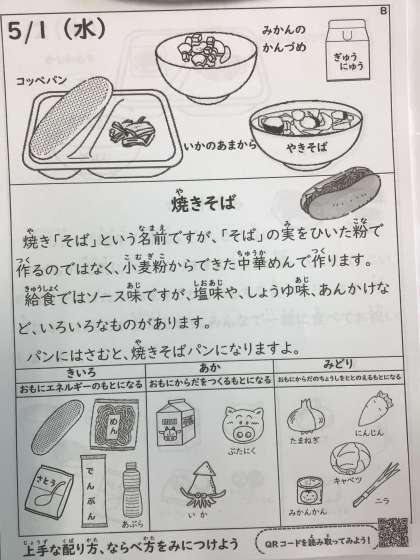 5/1（水）
B
みかんの
かんづめ
ぎゅう
にゅう
コッペパン
いかのあまから
やきそば
焼きそば
焼き「そば」という名前ですが、「そば」の実をひいた粉で
作るのではなく、小麦粉からできた中華めんで作ります。
給食ではソース味ですが、塩味や、しょうゆ味、あんかけな
ど、いろいろなものがあります。
パンにはさむと、焼きそばパンになりますよ。
きいろ
おもにエネルギーのもとになる
あか
おもにからだをつくるもとになる
みどり
おもにからだのちょうしをととのえるもとになる
めん
さとう
でんぷん
あぶら
ぶたにく
いか
たまねぎ
にんじん
キャベツ
みかんかん
ニラ
上手な配り方、ならべ方をみにつけよう
QRコードを読み取ってみよう！